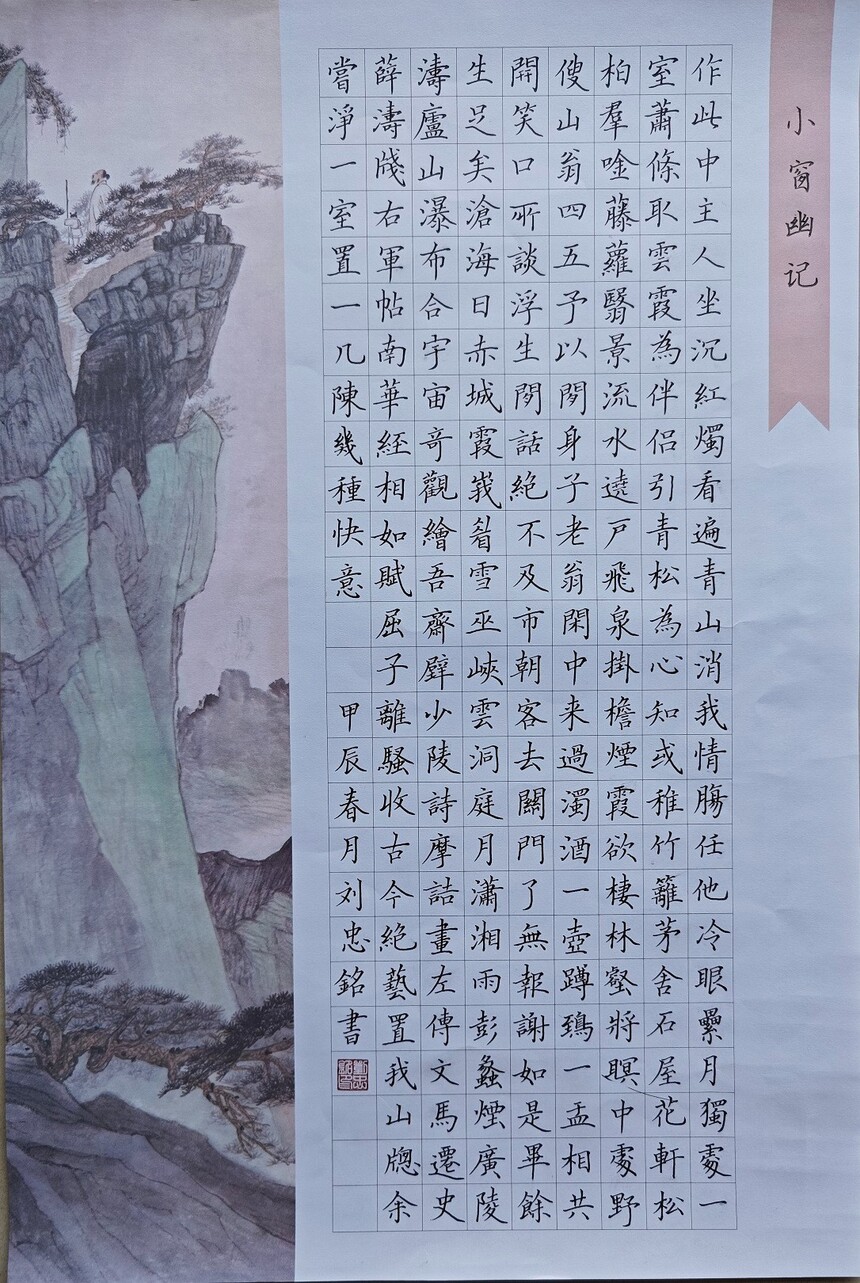 小窗幽记
作此中主人坐沉紅燭看遍青山消我情膓任他冷眼纍月獨處一
室蕭條取雲霞為伴侣引青松為心知或稚竹籬茅舍石屋花軒松
柏羣唫藤蘿翳景流水遶戸飛泉掛檐煙霞欲棲林壑將瞑中處野
傁山翁四五予以閒身子老翁閑中来過濁酒一壺蹲鴟一盂相共
開笑口所談浮生閒話絶不及市朝客去關門了無報謝如是畢餘
生足矣滄海日赤城霞峩眉雪巫峽雲洞庭月瀟湘雨彭蠡煙廣陵
濤廬山瀑布合宇宙奇觀繪吾齋壁少陵詩摩詰畫左傳文馬遷史
薛濤牋右軍帖南華經相如賦屈子離騷收古今絶藝置我山牕余
嘗淨一室置一几陳幾種快意 甲辰春月刘忠銘書